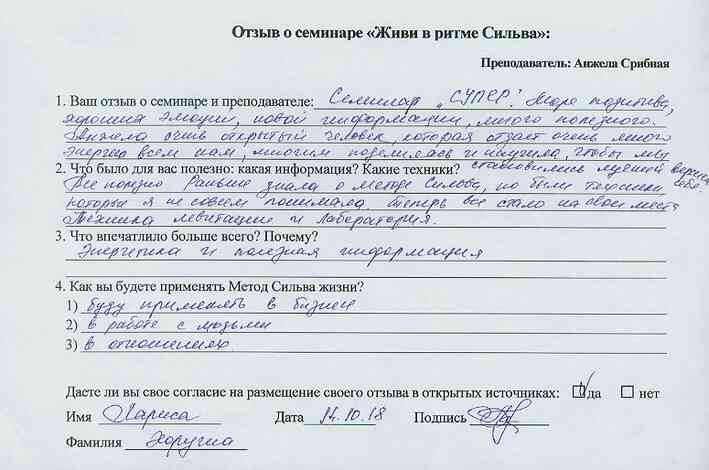 Отзыв о семинаре «Живи в ритме Сильва»:
Преподаватель: Анжела Срибная
1. Ваш отзыв о семинаре и преподавателе: Семинар „СУПЕР". Море позитива,
хороших эмоций, новой информации, много полезного.
Анжела очень открытый человек, которая отдает очень много
энергию всем нам, многим поделилась и научила, чтобы мы
2. Что было для вас полезно: какая информация? Какие техники? становились лучшей версией
себя.
Все полезно Раньше знала о методе Сильва, но были техники
которые я не совсем понимала, теперь все стало на свои места
Техника левитации и лаборатория.
3. Что впечатлило больше всего? Почему?
Энергетика и полезная информация
4. Как вы будете применять Метод Сильва жизни?
1) буду применять в бизнесе
2) в работе с людьми
3) в отношениях
Даете ли вы свое согласие на размещение своего отзыва в открытых источниках: да нет
Имя Лариса Дата 14.10.18 Подпись
Фамилия